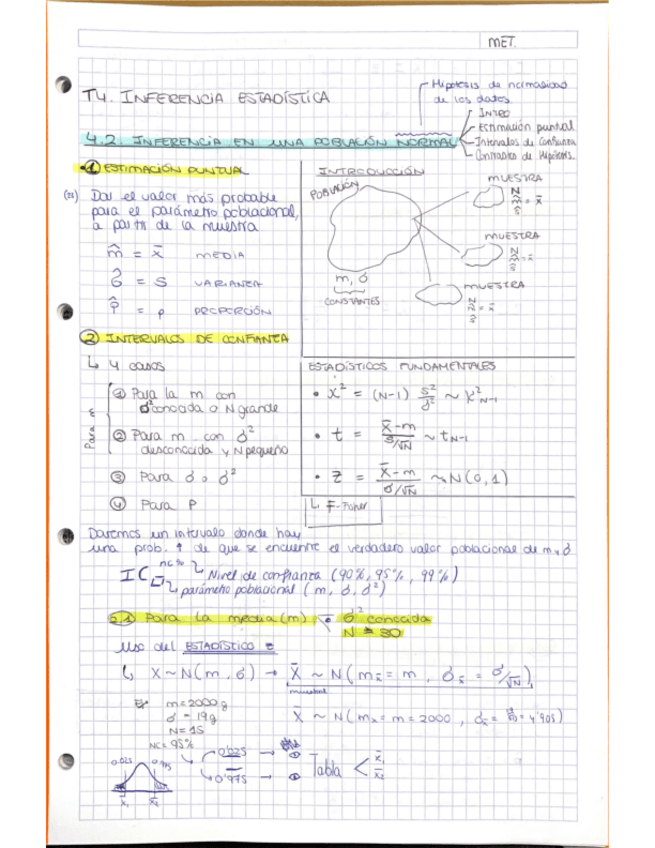 MET.
T4. INFERENCIA ESTADÍSTICA
Hipótesis de normalidad
de los datos
4.2. INFERENCIA EN UNA POBLACIÓN NORMAL
INTRO
Estimación puntual
Intervalos de Confianza
Contrastes de Hipótesis.
1 ESTIMACIÓN PUNTUAL
Dar el valor más probable
para el parámetro poblacional,
a partir de la muestra
m̂ = x̄ MEDIA
σ̂ = S VARIANZA
P̂ = p PROPORCIÓN
INTRODUCCIÓN
POBLACIÓN
m, σ
CONSTANTES
MUESTRA
= x̄
MUESTRA
= x̄
MUESTRA
= x̄
2 INTERVALOS DE CONFIANZA
↳ 4 casos
Para m
① Para la m con
σ² conocida o N grande
② Para m con σ²
desconocida y N pequeño
③ Para σ o σ²
④ Para P
ESTADÍSTICOS FUNDAMENTALES
• X² = (N-1) S²/σ² ~ X²N-1
• t = x̄-m / S/√N ~ tN-1
• Z = x̄-m / σ/√N ~ N(0,1)
↳ F-Fisher
Daremos un intervalo donde hay
una prob. ↑ de que se encuentre el verdadero valor poblacional de m y σ
IC nc% Nivel de confianza (90%, 95%, 99%)
parámetro poblacional (m, σ, σ²)
1) Para la media (m) σ² conocida
N ≥ 30
Uso del ESTADÍSTICO z
↳ X~N(m, σ) → X̄ ~ N(mx̄ = m, σx̄ = σ/√N)
muestral
Ej m = 2000 g
σ = 19g
N = 15
NC = 95%
X̄ ~ N(mx = m = 2000, σx̄ = = 4'905)
0'025 →
0'975 → ②
Tabla < x̄1
x̄2
0'025 0'975
x̄1 x̄2